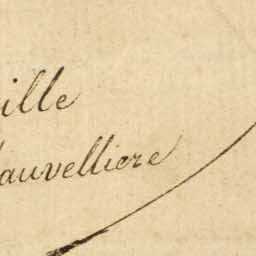 ille
auvelliere